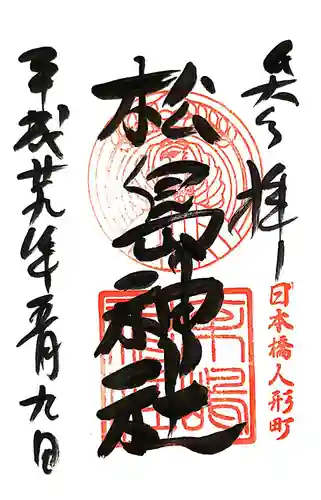 奉拝
日本橋人形町
松島神社
平成廿九年五月九日